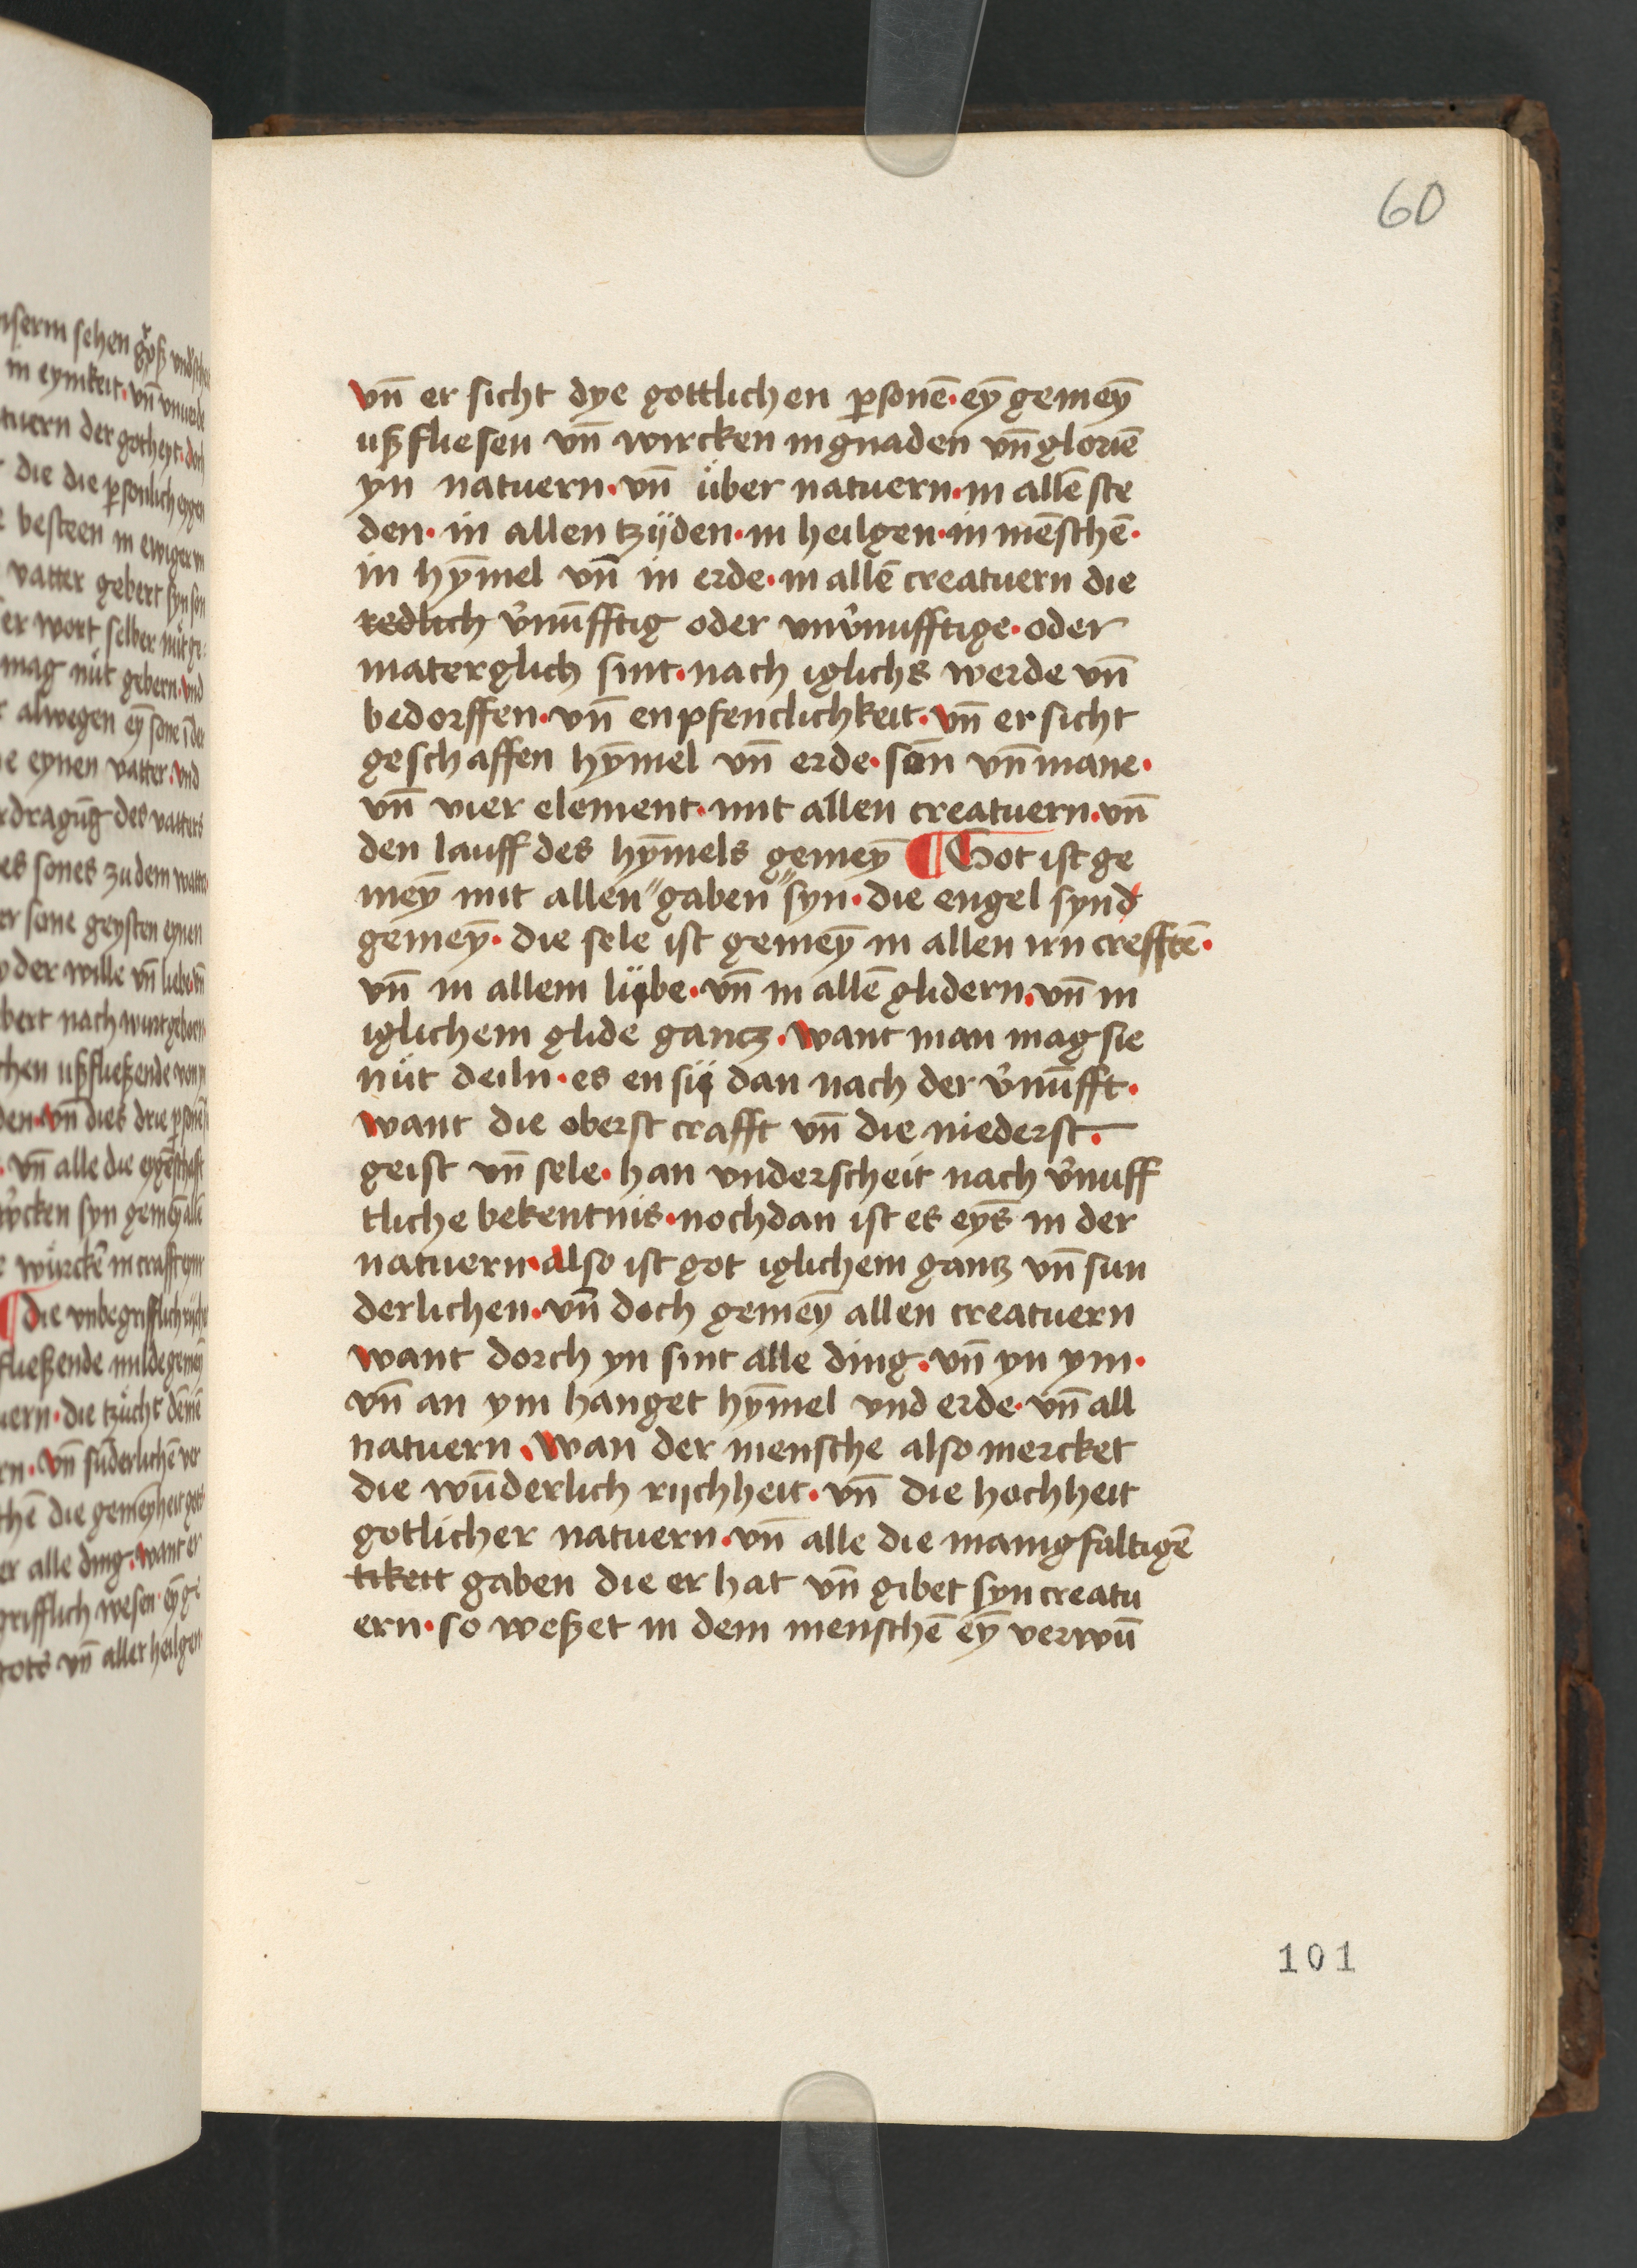 60
vn̄ er sicht dye gottlichen ꝑsonē · eȳ gemeȳ
ußfliesen vn̄ wircken in gnaden vn̄ gloriē
yn natuern · vn̄ über natuern · in allē ste
den · in allen tzijden · in heilgen · in mēschē ·
in hȳmel vn̄ in erde · in allē creatuern die
redlich v̓nūfftig oder unv̓nufftige · oder
materglich sint · nach iglichs werde vn̄
bedorffen · vn̄ enpfenclichkeit · vn̄ er sicht
geschaffen hȳmel vn̄ erde · son̄ vn̄ mane ·
vn̄ vier element · mit allen creatuern · vn̄
den lauff des hȳmels gemeȳ ¶ Got ist ge
meȳ mit allen "gaben "syn · die engel synd
gemeȳ · die sele ist gemeȳ in allen irn crefftē ·
vn̄ in allem lijbe · vn̄ in allē glidern · vn̄ in
iglichem glide gantz · want man mag sie
nüt deiln · es en sij dan nach der v̓nūfft ·
want die oberst crafft vn̄ die niederst ·
geist vn̄ sele · han vnderscheit nach v̓nuff
tliche bekentnis · nochdan ist es eȳs in der
natuern · also ist got iglichem gantz vn̄ sun
derlichen · vn̄ doch gemeȳ allen creatuern
want dorch yn sint alle ding · vn̄ yn ym ·
vn̄ an ym hanget hȳmel vnd erde · vn̄ all
natuern · wan der mensche also mercket
die wūderlich rijchheit · vn̄ die hochheit
gotlicher natuern · vn̄ alle die manigfaltigē
tikeit gaben die er hat vn̄ gibet syn creatu
ern · so weßet in dem menschē eȳ verwū
101